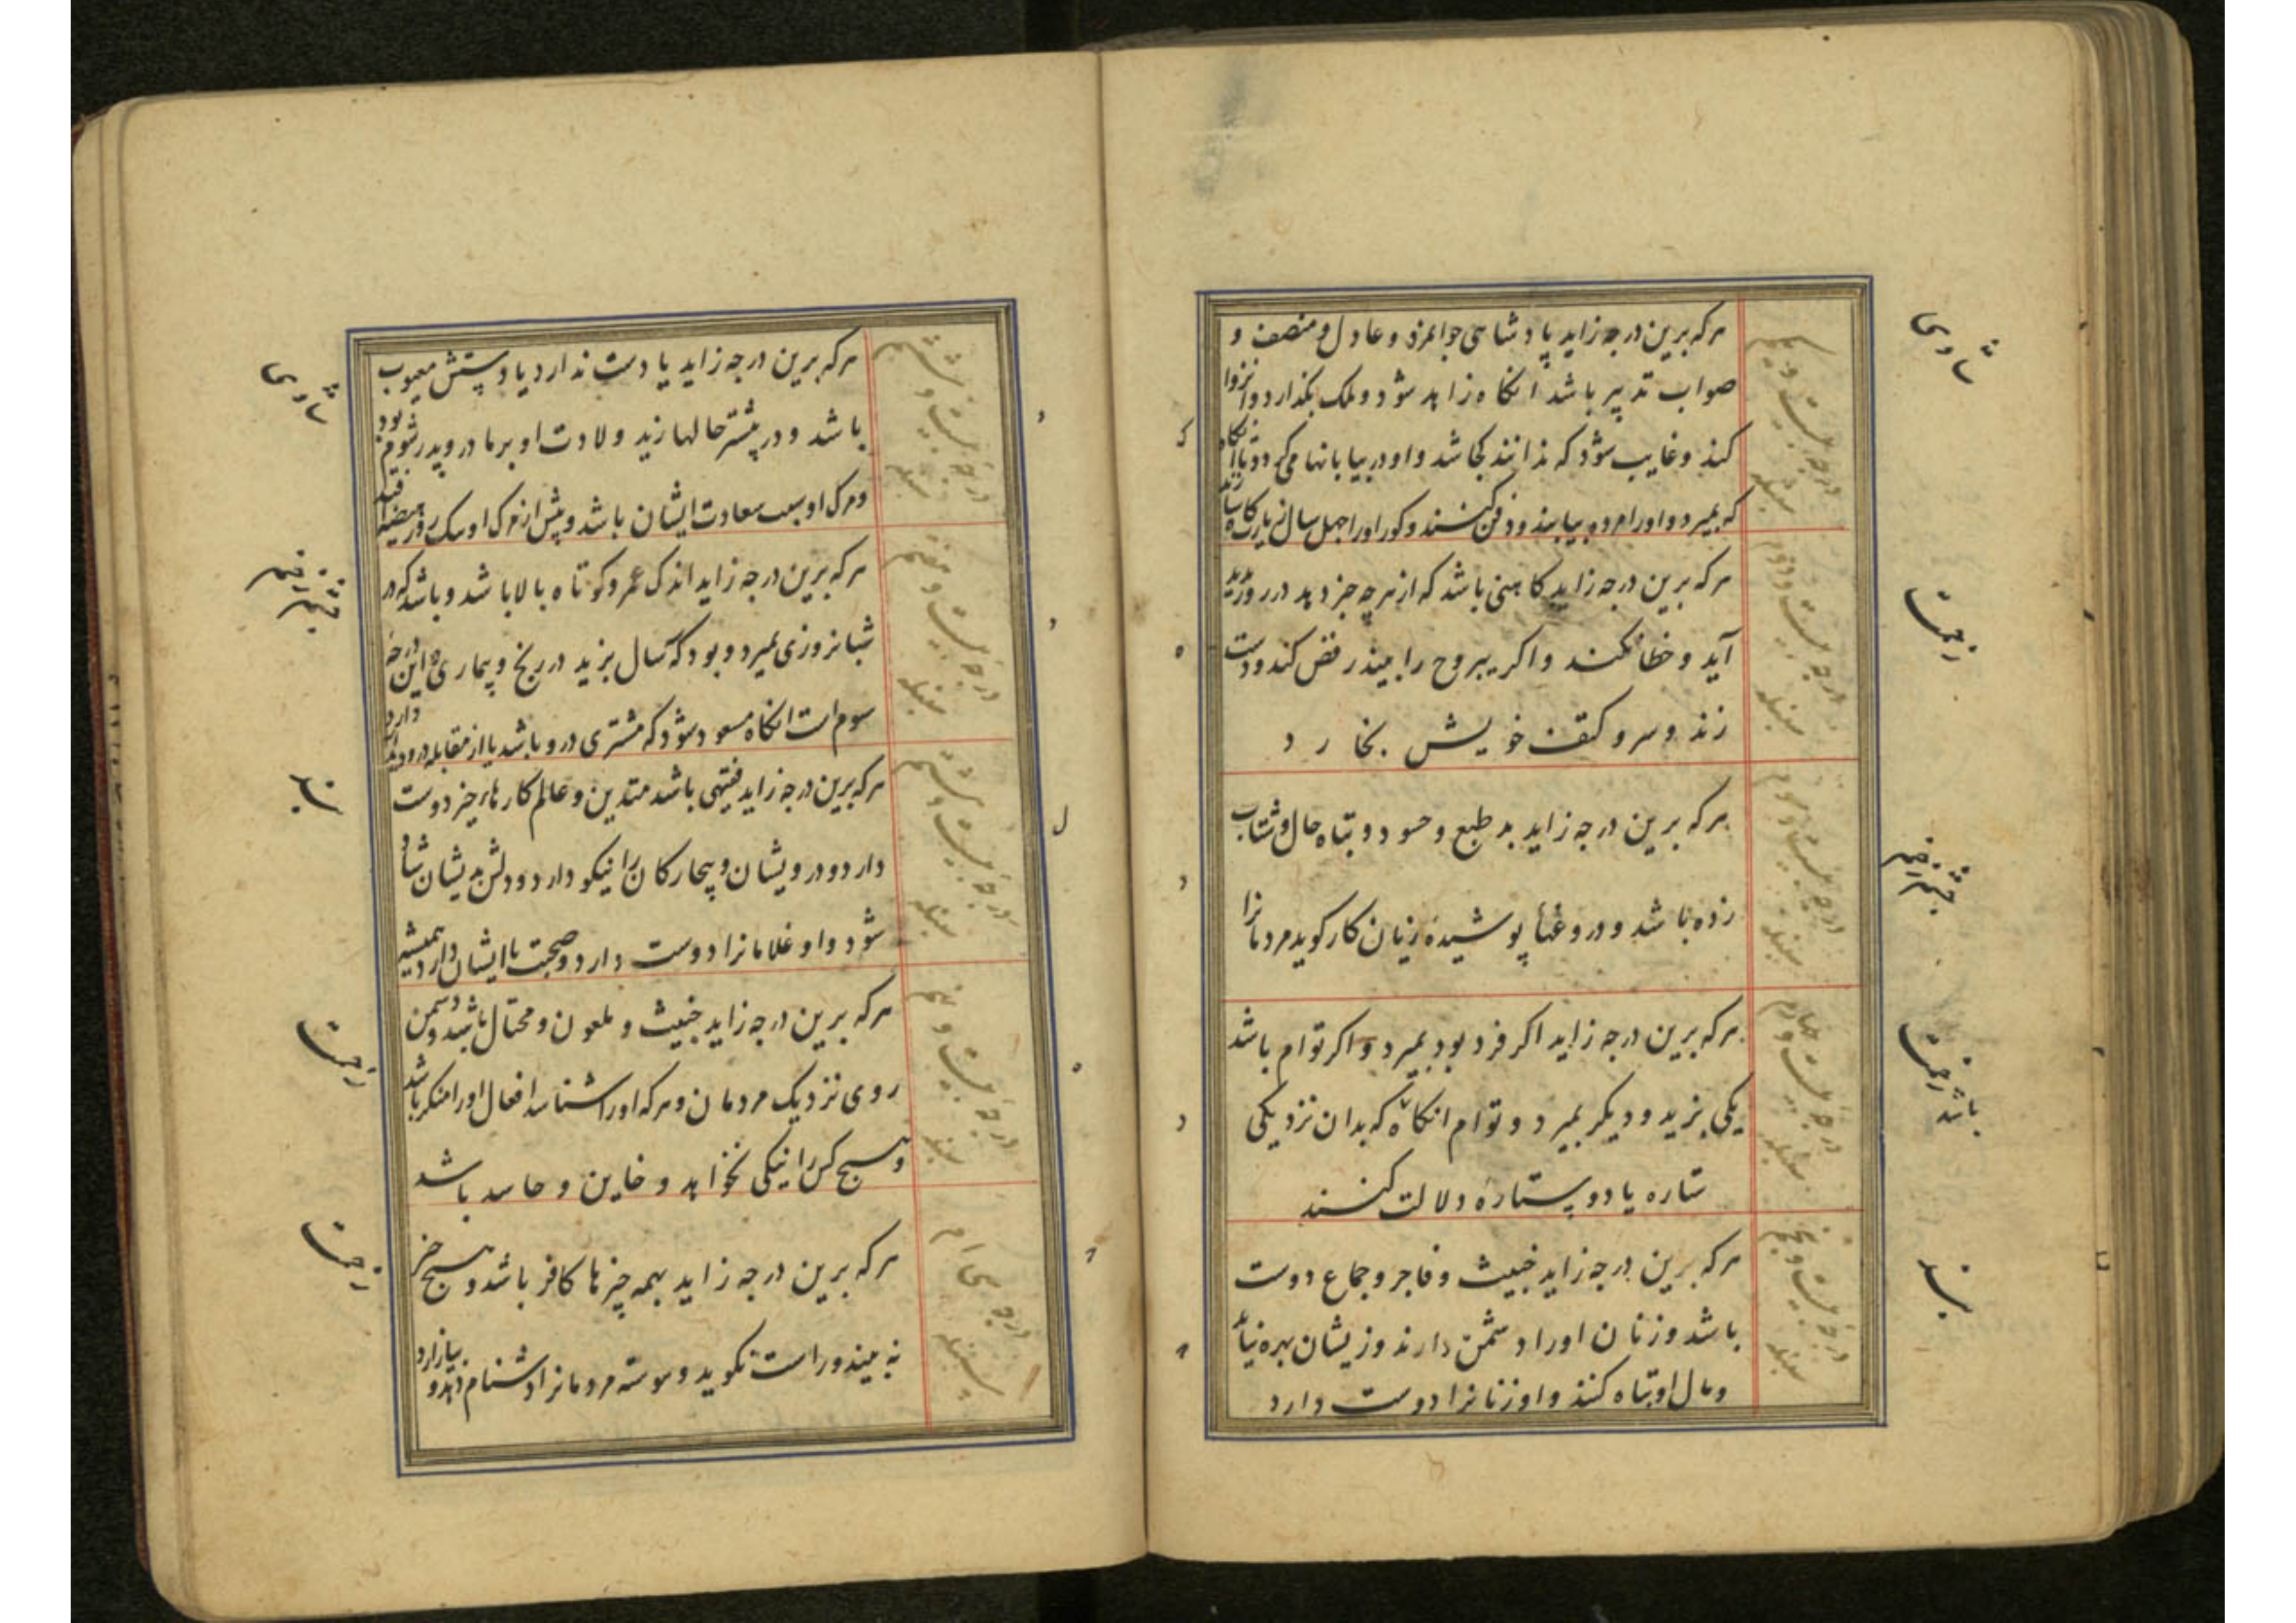 درجه بیست و یکم
سنبله
هرکه برین درجه زاید پادشاهی جوانمرد و عادل و منصف و
صواب تدبیر باشد انکاه زاهد شود و ملک بگذارد و انزوا
کند و غایب شود که ندانند کجا شد و او در بیابانها می کردد تا انکاه
که بمیرد و اورا مرده بیابند و دفن کنند و کور اورا چهل سال زیارتکاه سازند
درجه بیست و دوم
سنبله
هرکه برین درجه زاید کاهنی باشد که از هرچه خبر دهد در روز پدید
آید و خطا نکند و اکر یبروح را بیند رقص کند و دست
زند و سر و کتف خویش بخارد
درجه بیست و سوم
سنبله
هرکه برین درجه زاید بد طبع و حسود و تباه حال و شتاب
زده باشد و دروغها پوشیده زیان کار کوید مردمانرا
درجه بیست و چهارم
سنبله
هرکه برین درجه زاید اکر فرد بود بمیرد و اکر توام باشد
یکی بزید و دیکر بمیرد و توام انکاه که بدان نزدیکی
ستاره یا دو ستاره دلالت کنند
درجه بیست و پنجم
سنبله
هرکه برین درجه زاید خبیث و فاجر و جماع دوست
باشد و زنان اورا دشمن دارند وزیشان بهره نیابد
و مال او تباه کنند و او زنانرا دوست دارد
شادی
زحمت
باشد زحمت
درجه بیست و ششم
سنبله
هرکه برین درجه زاید یا دست ندارد یا دستش معیوب
باشد و در بیشتر حالها زید ولادت او بر مادر و پدر شوم بود
و مرک او سبب سعادت ایشان باشد و پیش از مرک او یک روز
درجه بیست و هفتم
سنبله
هرکه برین درجه زاید اندک عمر و کوتاه بالا باشد و باشد که در
شبانروزی بمیرد و بود که سال بزید در رنج و بیماری و این درجه
سوم است انکاه مسعود شود که مشتری درو باشد یا از مقابله درو دیدار دارد
درجه بیست و هشتم
سنبله
هرکه برین درجه زاید فقیهی باشد متدین و عالم کارهاء خیر دوست
دارد و درویشان و بیچارکان را نیکو دارد و دلش بدیشان شاد
شود و او غلامانرا دوست دارد و صحبت با ایشان دارد همیشه
درجه بیست و نهم
سنبله
هرکه برین درجه زاید خبیث و ملعون و محتال باشد و دشمن
روی نزدیک مردمان و هرکه اورا شناسد افعال اورا منکر باشد
و هیچ کس را نیکی نخواهد و خاین و حاسد باشد
درجه سی ام
سنبله
هرکه برین درجه زاید بهمه چیزها کافر باشد و هیچ خیر
نه بیند و راست نکوید و پیوسته مردمانرا دشنام دهد و بیازارد
شادی
زحمت
زحمت